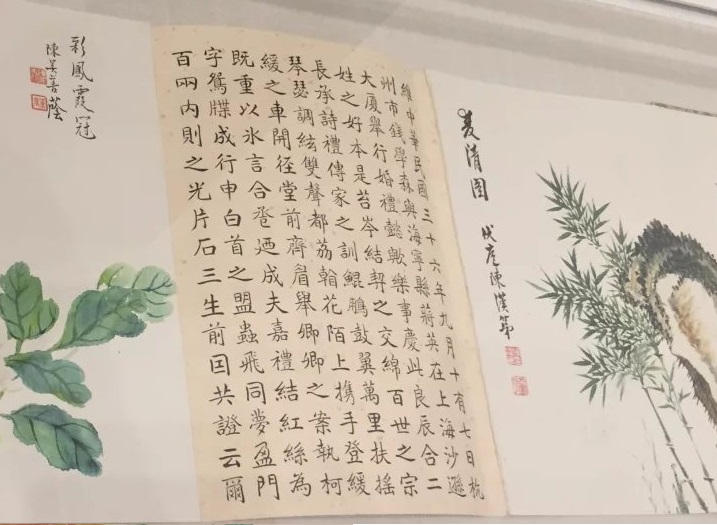 清圖
伏庐陳漢第
維中華民國三十六年九月十有七日杭
州市錢學森與海寧縣蔣英在上海沙遜
大廈舉行婚禮懿歟樂事慶此良辰合二
姓之好本是苔岑結契之交綿百世之宗
長承詩禮傳家之訓鯤鵬鼓翼萬里扶搖
琴瑟調絃雙聲都荔翰花陌上攜手登緩
緩之車開徑堂前齊眉舉卿卿之案執柯
既重以氷言合巹迺成夫嘉禮結紅絲為
字鴛牒成行申白首之盟蟲飛同夢盈門
百兩內則之光片石三生前囯共證云爾
彩鳳霞冠
陳